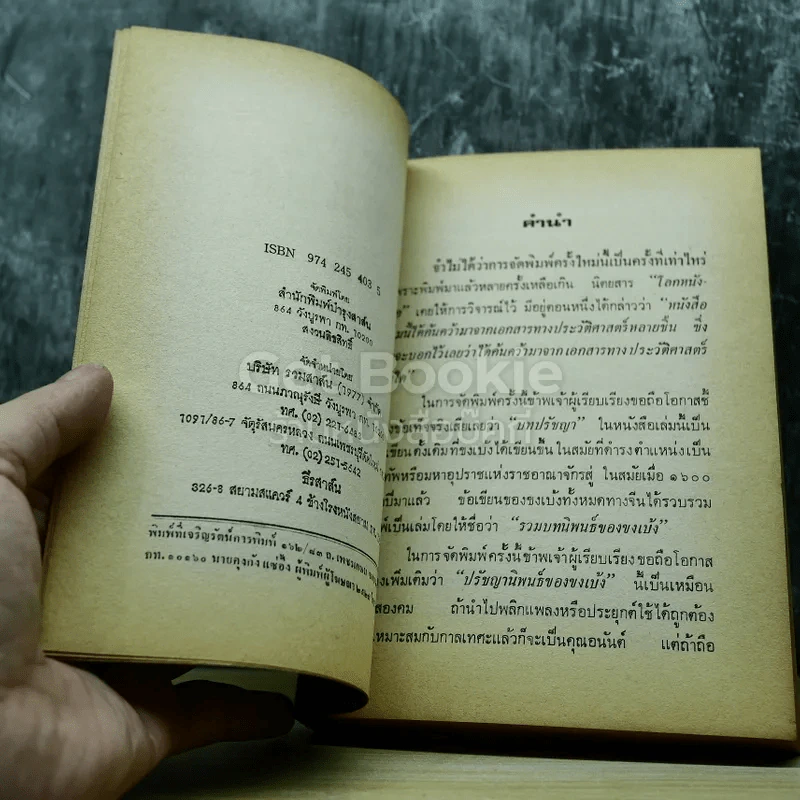 ISBN 974 245 403 5
จัดพิมพ์โดย
สำนักพิมพ์บำรุงสาส์น
864 วังบูรพา กท. 10200
สงวนลิขสิทธิ์
จัดจำหน่ายโดย
บริษัท รวมสาส์น (1977) จำกัด
864 ถนนภาณุรังษี วังบูรพา กท.
ทศ. (02) 221-6483
1091/86-7 จัตุรัสนครหลวง ถนนเพชรบุรีตัดใหม่
ทศ. (02) 251-5642
ธีรสาส์น
326-8 สยามสแควร์ 4 ข้างโรงหนังสยาม
พิมพ์ที่เจริญรัตน์การพิมพ์ ๑๖๒/๘๓ ถ.
กท. ๑๐๑๖๐ นายคุงกัง แซ่อึ้ง ผู้พิมพ์ผู้โฆษณา
คำนำ
จำไม่ได้ว่าการจัดพิมพ์ครั้งใหม่นี้เป็นครั้งที่เท่าไหร่
เพราะพิมพ์มาแล้วหลายครั้งเหลือเกิน นิตยสาร "โลกหนัง-
เคยให้การวิจารณ์ไว้ มีอยู่ตอนหนึ่งได้กล่าวว่า "หนังสือ
นี้ได้ค้นคว้ามาจากเอกสารทางประวัติศาสตร์หลายชิ้น ซึ่ง
จะบอกไว้เลยว่าได้ค้นคว้ามาจากเอกสารทางประวัติศาสตร์
ในการจัดพิมพ์ครั้งนี้ข้าพเจ้าผู้เรียบเรียงขอถือโอกาสชี้
ข้อเท็จจริงเสียเลยว่า "บทปรัชญา" ในหนังสือเล่มนี้เป็น
เขียนดั้งเดิมที่ขงเบ้งได้เขียนขึ้น ในสมัยที่ดำรงตำแหน่งเป็น
ทัพหรือมหาอุปราชแห่งราชอาณาจักรสู่ ในสมัยเมื่อ ๑๖๐๐
ปีมาแล้ว ข้อเขียนของขงเบ้งทั้งหมดทางจีนได้รวบรวม
พ์เป็นเล่มโดยให้ชื่อว่า "รวมบทนิพนธ์ของขงเบ้ง"
ในการจัดพิมพ์ครั้งนี้ข้าพเจ้าผู้เรียบเรียงขอถือโอกาส
งเพิ่มเติมว่า "ปรัชญานิพนธ์ของขงเบ้ง" นี้เป็นเหมือน
สองคม ถ้านำไปพลิกแพลงหรือประยุกต์ใช้ได้ถูกต้อง
เหมาะสมกับกาลเทศะแล้วก็จะเป็นคุณอนันต์ แต่ถ้าถือ
Got Bookie
ร้านหนังสือก็อตบุ๊คกี้